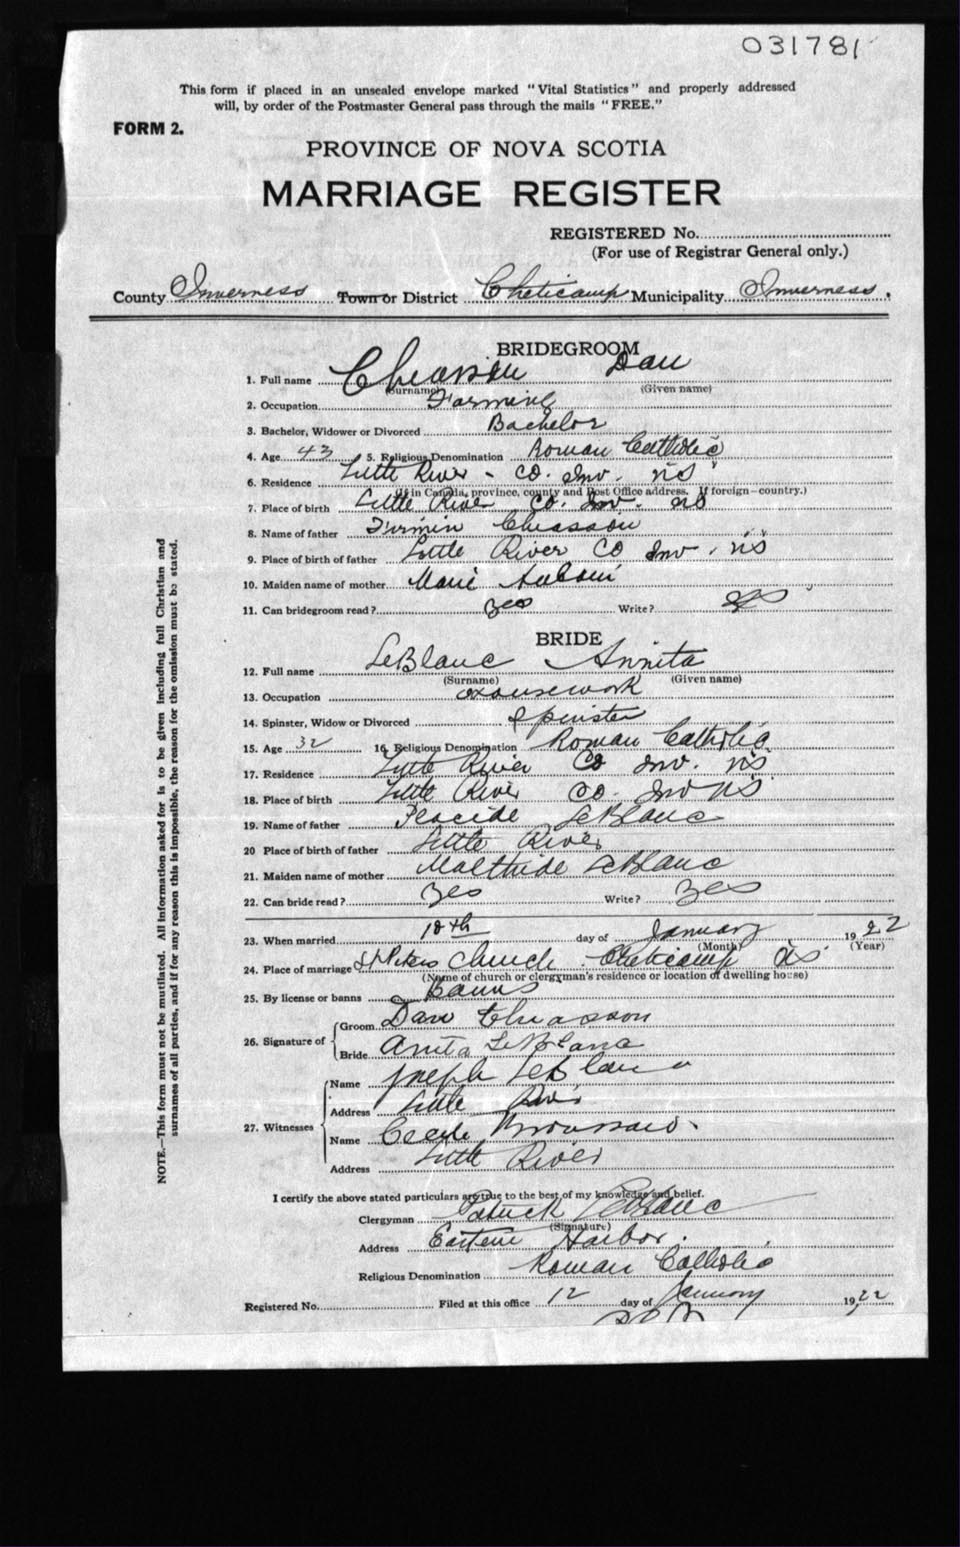 031781
This form if placed in an unsealed envelope marked "Vital Statistics" and properly addressed
will, by order of the Postmaster General pass through the mails "FREE."
FORM 2.
PROVINCE OF NOVA SCOTIA
MARRIAGE REGISTER
REGISTERED No.
(For use of Registrar General only.)
County Inverness Town or District Cheticamp Municipality Inverness.
BRIDEGROOM
1. Full name Chiasson Dan
(Surname) (Given name)
2. Occupation Farming
3. Bachelor, Widower or Divorced Bachelor
4. Age 43 5. Religious Denomination Roman Catholic
6. Residence Little River - Co. Inv. NS
(If in Canada, province, county and Post Office address. If foreign-country.)
7. Place of birth Little River Co. Inv. NS
8. Name of father Firmin Chiasson
9. Place of birth of father Little River Co Inv. NS
10. Maiden name of mother Marie
11. Can bridegroom read? yes Write? yes
BRIDE
12. Full name LeBlanc Annita
(Surname) (Given name)
13. Occupation Housework
14. Spinster, Widow or Divorced Spinster
15. Age 32 16. Religious Denomination Roman Catholic
17. Residence Little River Co Inv. NS
18. Place of birth Little River Co. Inv NS
19. Name of father Placide LeBlanc
20 Place of birth of father Little River
21. Maiden name of mother LeBlanc
22. Can bride read? Yes Write? Yes
23. When married 10th day of January 1922
(Month) (Year)
24. Place of marriage St Peters Church Cheticamp NS
(Name of church or clergyman's residence or location of dwelling house)
25. By license or banns Banns
26. Signature of
Groom Dan Chiasson
Bride Anita LeBlanc
27. Witnesses
Name Joseph LeBlanc
Address Little River
Name Cecile Broussard.
Address Little River
I certify the above stated particulars are true to the best of my knowledge and belief.
Clergyman Patrick LeBlanc
(Signature)
Address Eastern Harbor.
Religious Denomination Roman Catholic
Registered No. Filed at this office 12 day of January 1922
NOTE.—This form must not be mutilated. All information asked for is to be given including full Christian and
surnames of all parties, and if for any reason this is impossible, the reason for the omission must be stated.